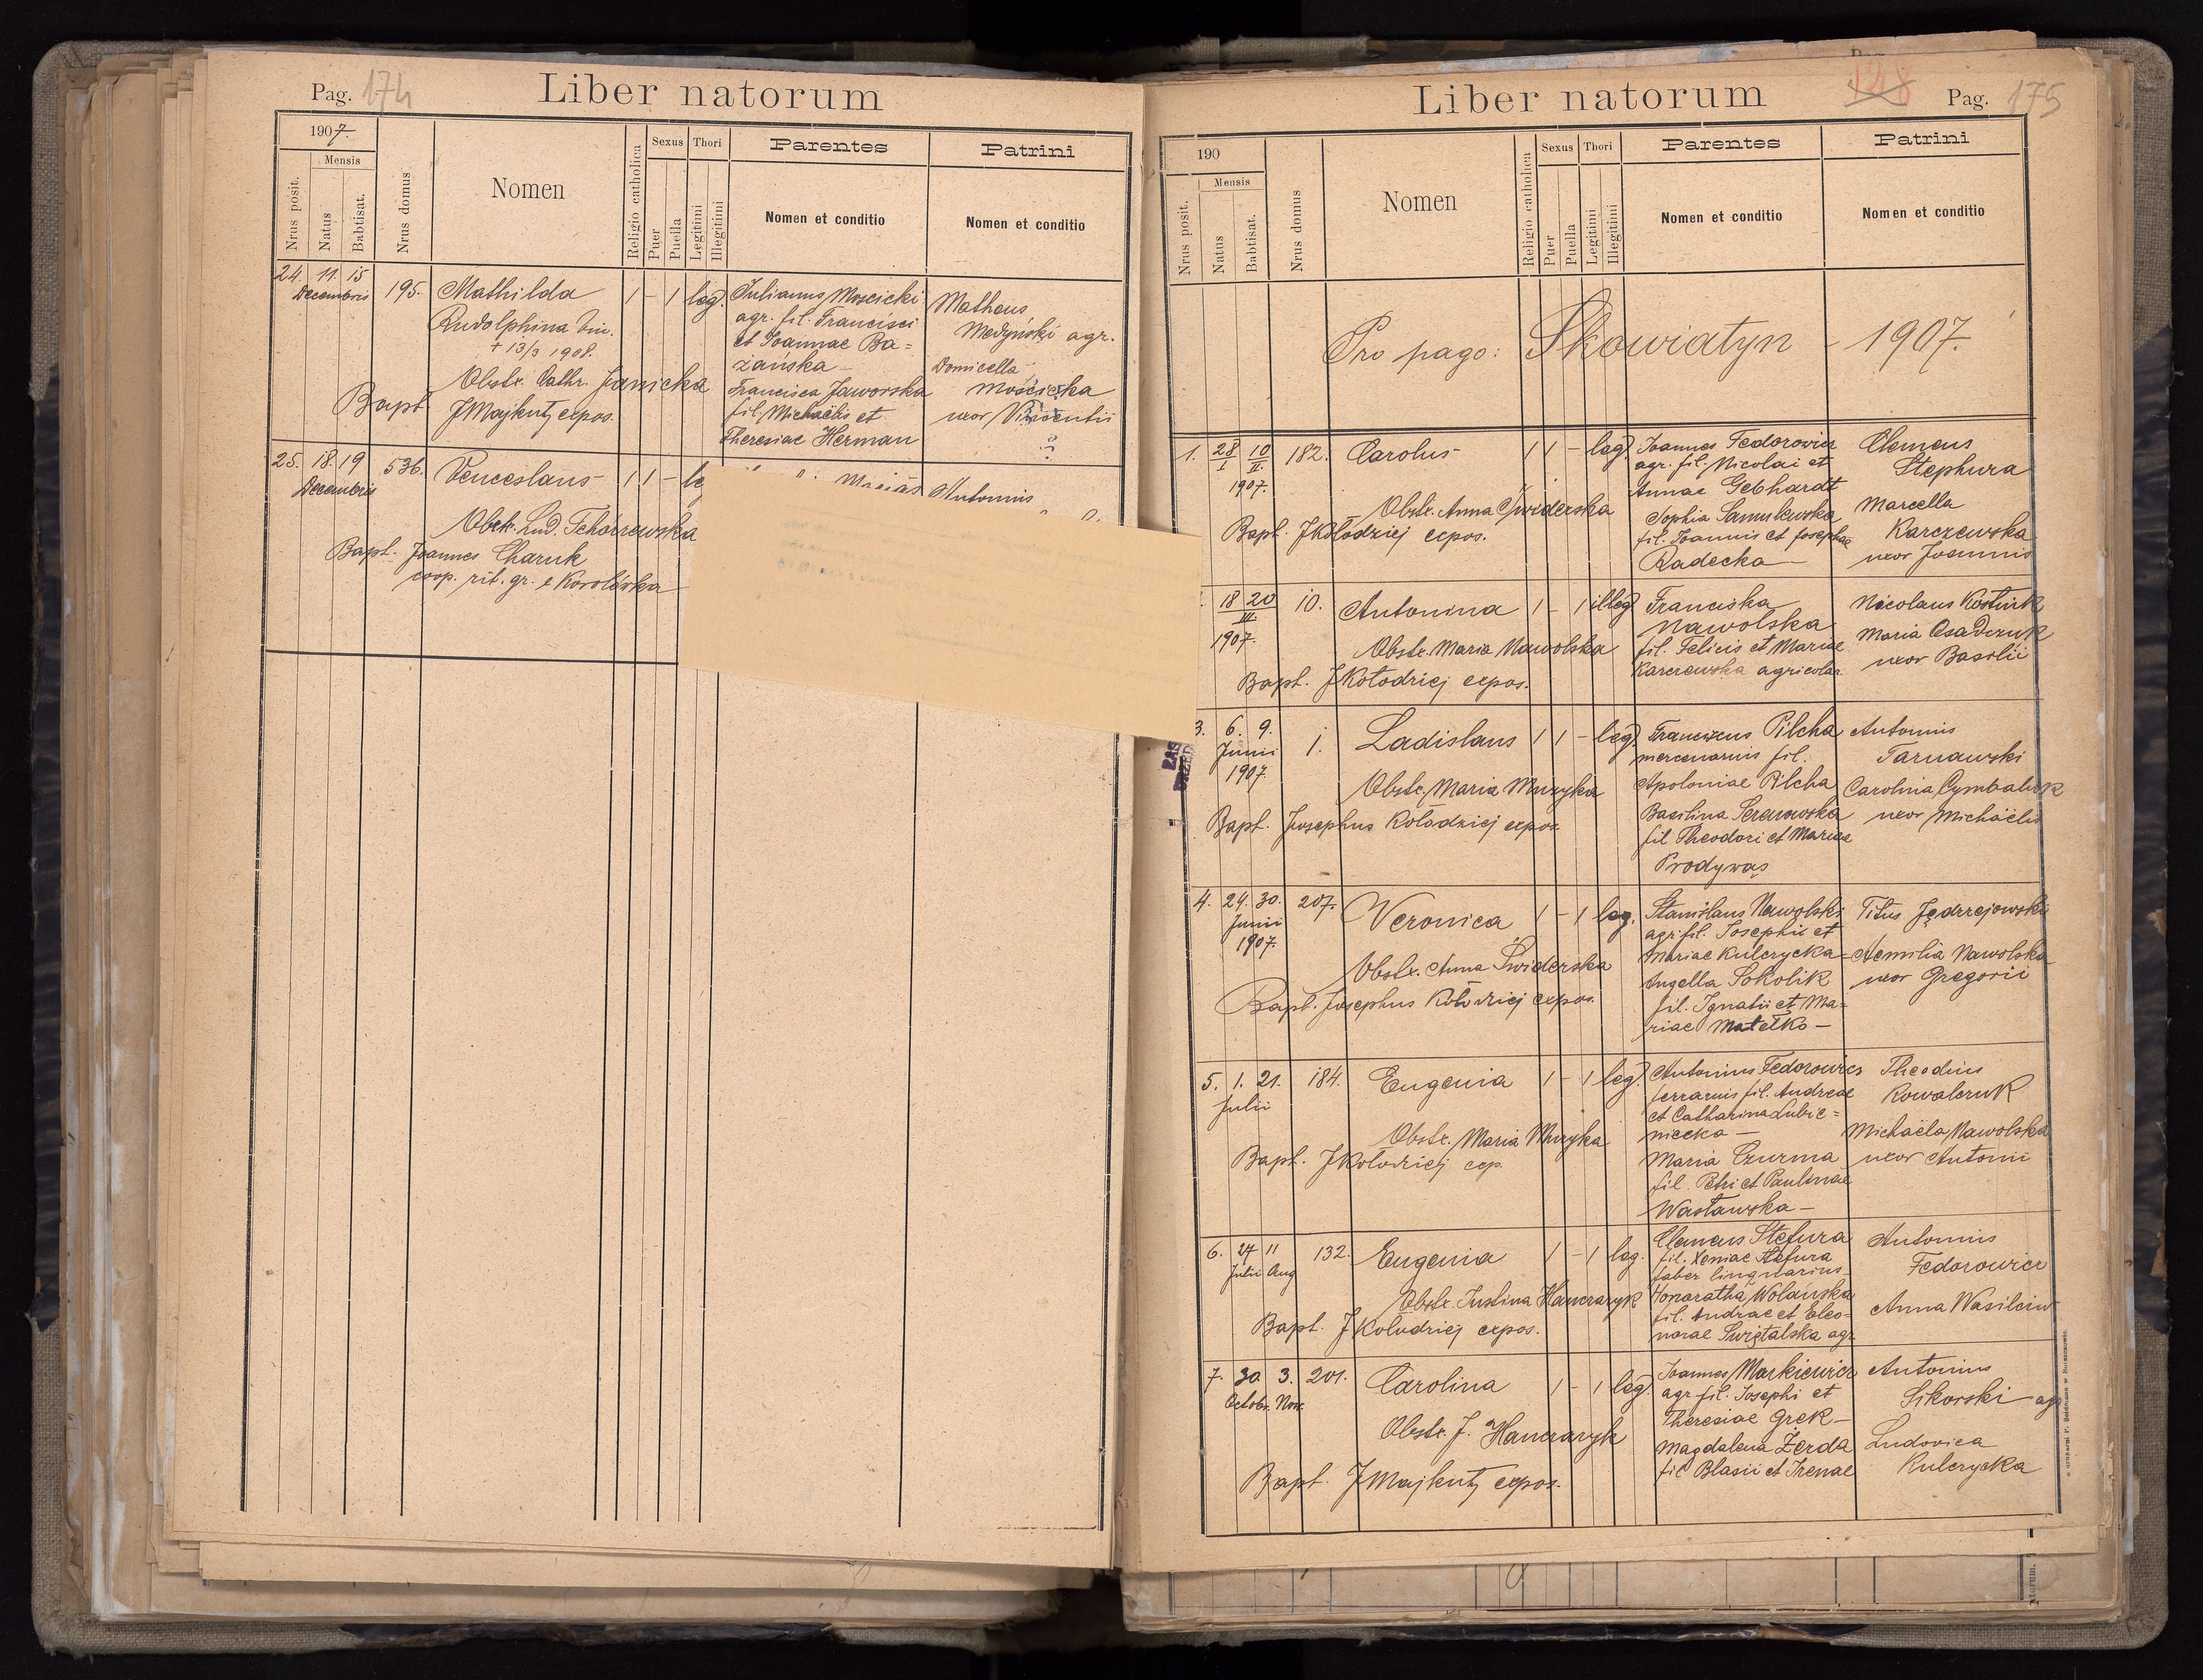 Pag. 174
Liber natorum
1907.
Mensis
Nrus posit.
Natus
Babtisat.
Nrus domus
Nomen
Religio catholica
Sexus
Puer
Puella
Thori
Legitimi
Illegitimi
Parentes
Nomen et conditio
Patrini
Nomen et conditio
24. 11. 15 Decembris 195. Mathilda 1 - 1 leg.
Rudolphina bin.
+ 13/3 1908.
Obstr. Cathr. Janicka
Bapt. JMajkuty expos.
Julianus Moscicki
agr. fil. Francisci
et Joannae Ba=
żańska -
Francisca Jaworska
fil. Michaëlis et
Theresiae Herman
Matheus
Medyński agr.
Domicella
Mościcka
uxor Vincentii
25. 18. 19 Decembris 536. Venceslaus 1 1 - le
Obstr. Lud. Tchórzewska
Bapt. Joannes Charuk
coop. rit. gr. e Korolówka
Antonius
Liber natorum
148
Pag. 175
190
Mensis
Nrus posit.
Natus
Babtisat.
Nrus domus
Nomen
Religio catholica
Sexus
Puer
Puella
Thori
Legitimi
Illegitimi
Parentes
Nomen et conditio
Patrini
Nomen et conditio
Pro pago: Skowiatyn - 1907.
1. 28/I 10/II 1907. 182. Carolus 1 1 - leg.
Obstr. Anna Świderska
Bapt. JKołodziej expos.
Joannes Fedorowicz
agr. fil. Nicolai et
Annae Gebhardt
Sophia Samulewska
fil. Joannis et Josephae
Radecka -
Clemens
Stephura
Marcella
Karczewska
uxor Joannis
18 20 III. 1907. 10. Antonina 1 - 1 illeg.
Obstr. Maria Nawolska
Bapt. JKołodziej expos.
Franciska
Nawolska
fil. Felicis et Mariae
Karczewska agricolar.
Nicolaus Kostiuk
Maria Osadczuk
uxor Basilii
3. 6. 9. Junii 1907. 1. Ladislaus 1 1 - leg.
Obstr. Maria Muzyka
Bapt. Josephus Kołodziej expos.
Franciscus Pilcha
mercenarius fil.
Apoloniae Pilcha
Basilina
fil Theodori et Mariae
Prodywas
Antonius
Tarnawski
Carolina Cymbaluk
uxor Michaëlis
4. 24. 30. Junii 1907. 207. Veronica 1 - 1 leg.
Obstr. Anna Świderska
Bapt. Josephus Kołodziej expos.
Stanislaus Nawolski
agr. fil. Josephi et
Mariae Kulczycka
Angella Sokolik
fil. Ignatii et Ma=
riae Matełko -
Titus Jędrzejowski
Aemilia Nawolska
uxor Gregorii
5. 1. 21. Julii 184. Eugenia 1 - 1 leg.
Obstr. Maria Muzyka
Bapt. JKołodziej exp.
Antonius Fedorowicz
ferrarius fil. Andreae
et Catharina Lubie=
niecka -
Maria Czurma
fil. Petri et Paulinae
Wasławska -
Theodius
Kowalczuk
Michaëla Nawolska
uxor Antonii
6. 27 11 Julii Aug 132. Eugenia 1 - 1 leg.
Obstr. Justina Hanczaryk
Bapt. JKołodziej expos.
Clemens Stefura
fil. Xeniae Stefura
faber lingnarius
Honoratha Wolańska
fil. Andrae et Eleo-
norae Swiętalska agr.
Antonius
Fedorowicz
Anna Wasilciw
7. 30. 3. Octobr. Nov. 201. Carolina 1 - 1 leg.
Obstr. J. Hanczaryk
Bapt. JMajkuty expos.
Joannes Markiewicz
agr. fil. Josephi et
Theresiae Grek -
Magdalena Zerda
fil Blasii et Irenae
Antonius
Sikorski - agr
Ludovica
Kulczycka